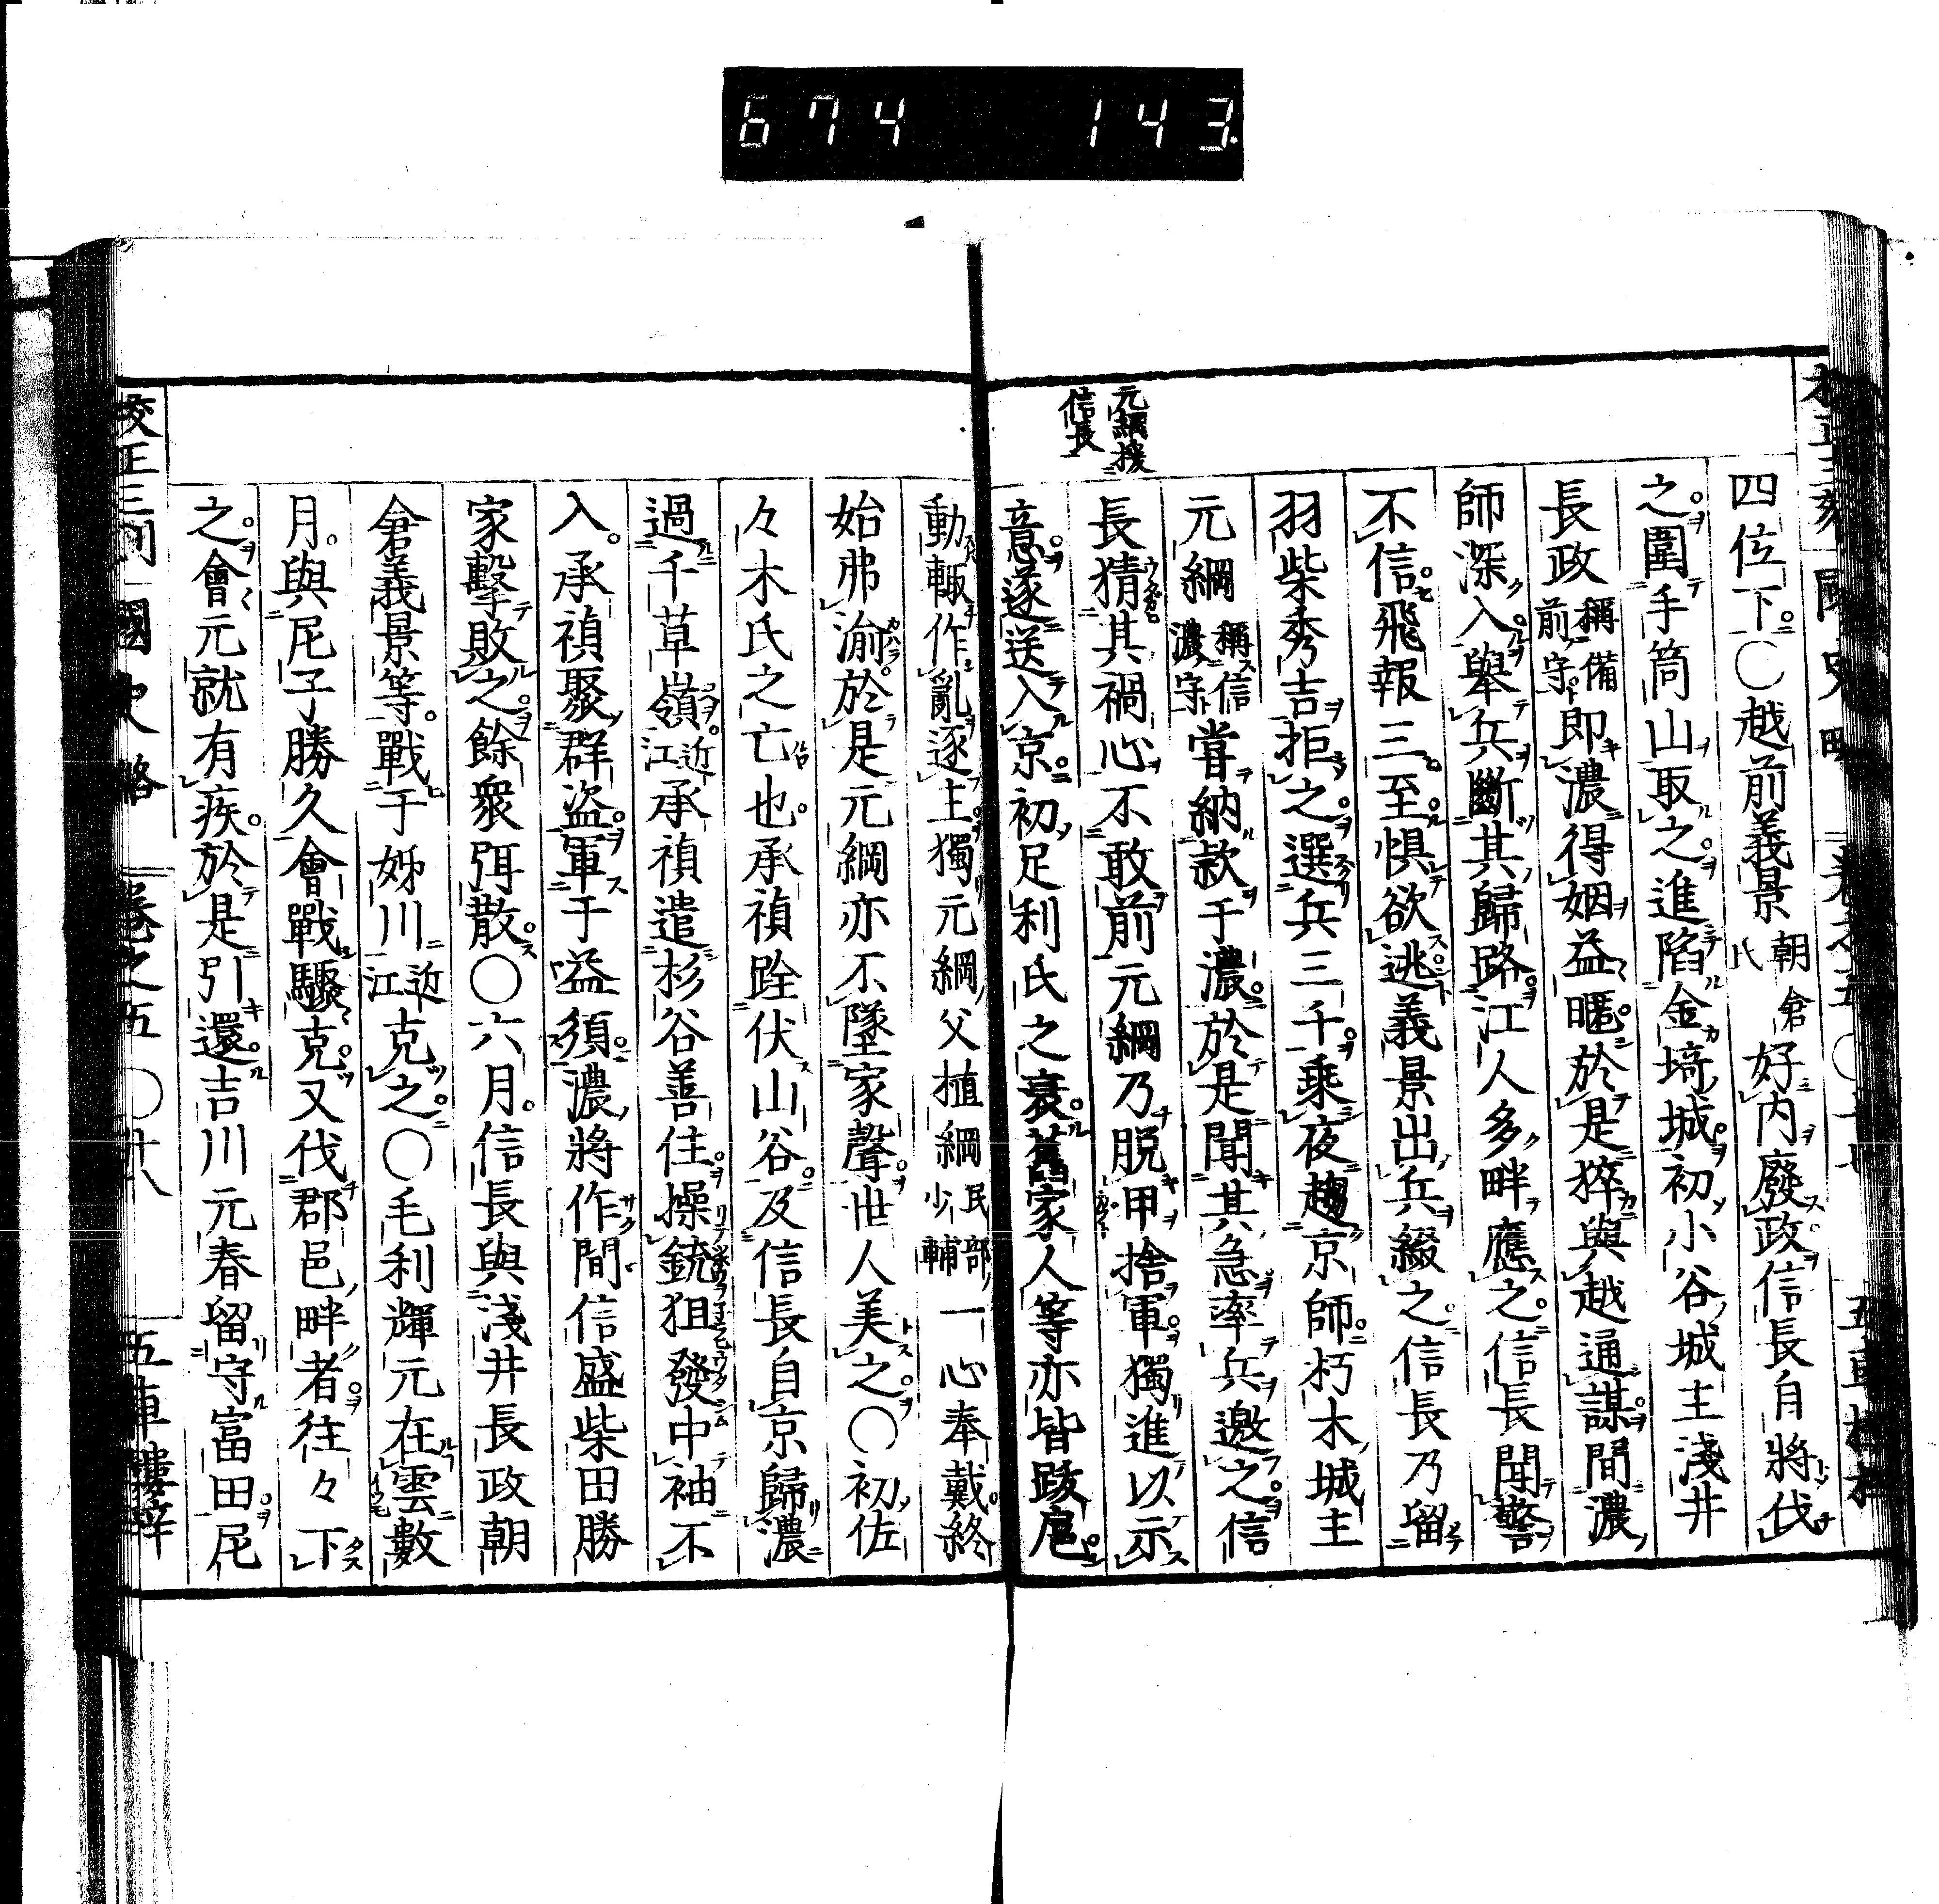 674 143
元綱援
信長
四位下○越前義景朝倉氏好内廢政信長自將伐
之圍手筒山取之進陷金埼城初小谷城主淺井
長政稱備前守即濃得姻益暱於是猝與越通謀間濃
師深入舉兵斷其歸路江人多畔應之信長聞警
不信飛報三至惧欲逃義景出兵綴之信長乃留
羽柴秀吉拒之選兵三千乘夜趨京師朽木城主
元綱稱信濃守嘗納款于濃於是聞其急率兵邀之信
長猜其禍心不敢前元綱乃脱甲捨軍獨進以示
意遂送入京初足利氏之衰舊家人等亦皆跋扈
動輙作亂逐主獨元綱父植綱民部少輔一心奉戴終
始弗渝於是元綱亦不墜家聲世人美之○初佐
々木氏之亡也承禎跧伏山谷及信長自京歸濃
過千草嶺近江承禎遣杉谷善住操銃狙發中袖不
入承禎聚群盗軍于嗌須濃將作間信盛柴田勝
家擊敗之餘衆弭散○六月信長與淺井長政朝
倉義景等戰于姊川近江克之○毛利輝元在雲數
月與尼子勝久會戰驟克又伐郡邑畔者往々下
之會元就有疾於是引還吉川元春留守富田尼
校正三刻國史略 卷之五 ○廿八 五車樓梓